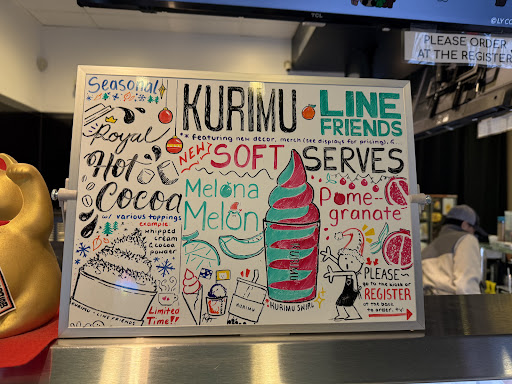 ©LY CO
TCL
PLEASE ORDER
AT THE REGISTER
Seasonal
Royal
Hot
Cocoa
w/ various toppings
example:
whipped
cream
& cocoa
powder
KURIMU · LINE FRIENDS
Limited
Time!!
KURIMU
LINE
FRIENDS
** featuring new decor, merch (see displays for pricing), &...
NEW!
SOFT SERVES
Melona
Melon
Pome-
granate
KURIMU
KURIMU
KURIMU SWIRL
PLEASE
go to the kiosk or
REGISTER
at the back
to order. ty!